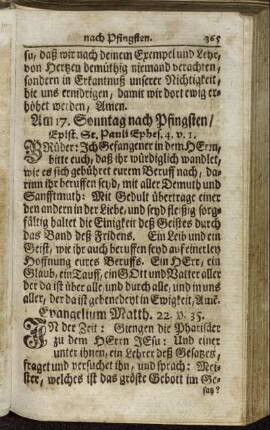 nach Pfingsten. 365
su, daß wir nach deinem Exempel und Lehr,
von Hertzen demüthig niemand verachten,
sondern in Erkantnuß unserer Nichtigkeit,
hie uns ernidrigen, damit wir dort ewig er-
höhet werden, Amen.
Am 17. Sonntag nach Pfingsten/
Epist. St. Pauli Ephes. 4. v. 1.
BRüder: Ich Gefangener in dem HErrn,
bitte euch, daß ihr würdiglich wandlet,
wie es sich gebühret eurem Beruff nach, da-
rinn ihr beruffen seyd, mit aller Demuth und
Sanfftmuth: Mit Gedult übertrage einer
den andern in der Liebe, und seyd fleissig sorg-
fältig haltet die Einigkeit deß Geistes durch
das Band deß Fridens. Ein Leib und ein
Geist, wie ihr auch beruffen seyd auf einerley
Hoffnung eures Beruffs. Ein HErr, ein
Glaub, ein Tauff, ein GOtt und Vatter aller
der da ist über alle, und durch alle, und in uns
allen, der da ist gebenedeyt in Ewigkeit, Amē.
Evangelium Matth. 22. v. 35.
IN der Zeit: Giengen die Phariseer
zu dem HErrn JEsu: Und einer
unter ihnen, ein Lehrer deß Gesatzes,
fraget und versuchet ihn, und sprach: Mei-
ster, welches ist das gröste Gebott im Ge-
satz?